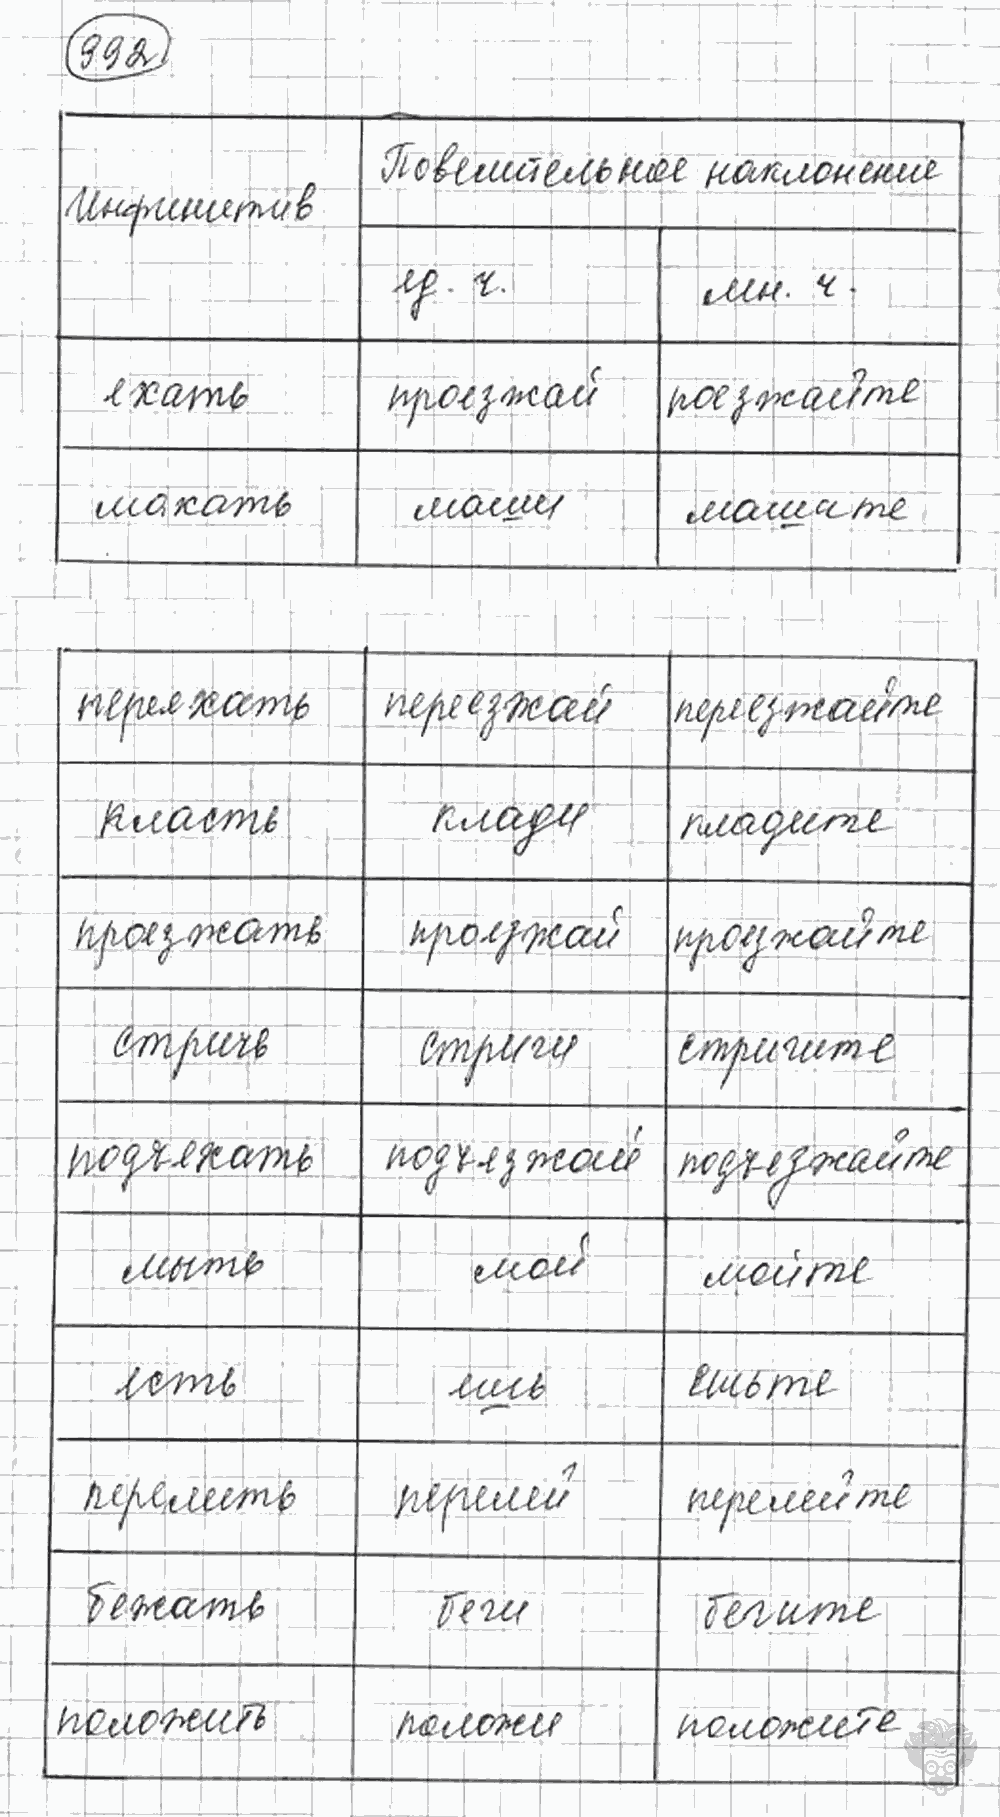 992
Инфинитив Повелительное наклонение
ед. ч. мн. ч.
ехать проезжай поезжайте
махать маши машите
переехать переезжай переезжайте
класть клади кладите
проезжать проезжай проезжайте
стричь стриги стригите
подъехать подъезжай подъезжайте
мыть мой мойте
есть ешь ешьте
перелить перелей перелейте
бежать беги бегите
положить положи положите